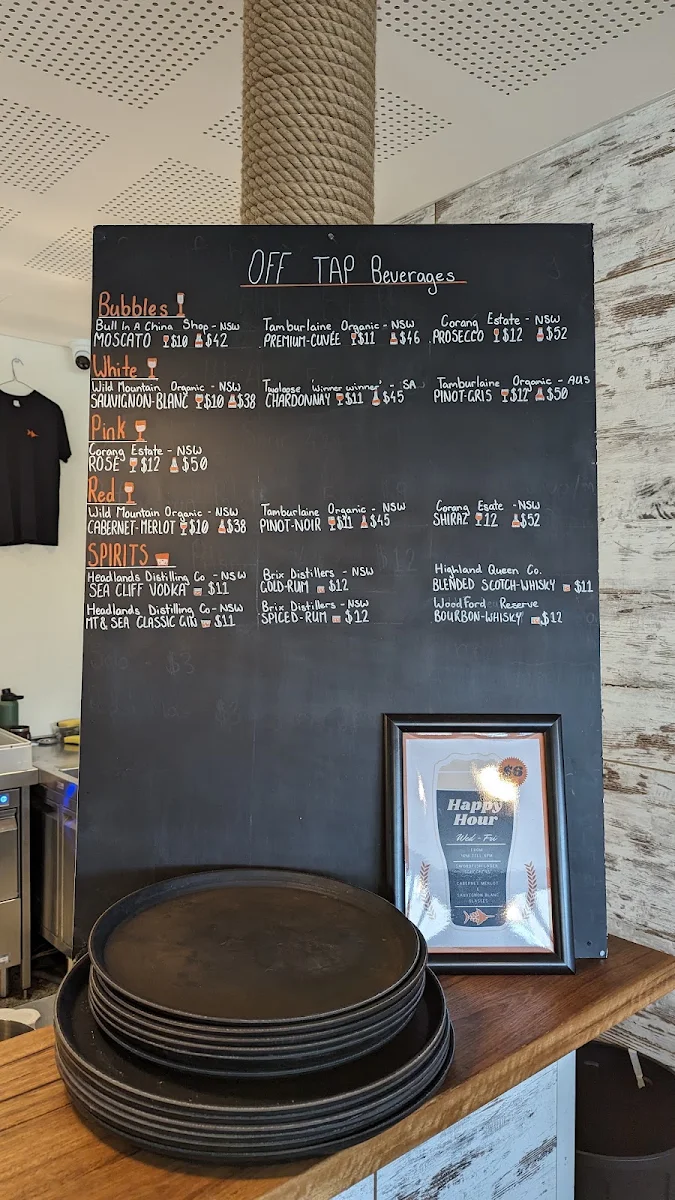 OFF TAP Beverages
Bubbles
Bull In A China Shop - NSW
MOSCATO $10 $42
Tamburlaine Organic - NSW
PREMIUM-CUVÉE $11 $46
Corang Estate - NSW
PROSECCO $12 $52
White
Wild Mountain Organic - NSW
SAUVIGNON-BLANC $10 $38
Twoloose 'winner winner' - SA
CHARDONNAY $11 $45
Tamburlaine Organic - AUS
PINOT-GRIS $12 $50
Pink
Corang Estate - NSW
ROSE $12 $50
Red
Wild Mountain Organic - NSW
CABERNET-MERLOT $10 $38
Tamburlaine Organic - NSW
PINOT-NOIR $11 $45
Corang Esate - NSW
SHIRAZ 12 $52
SPIRITS
Headlands Distilling Co - NSW
SEA CLIFF VODKA $11
Brix Distillers - NSW
GOLD-RUM $12
Highland Queen Co.
BLENDED SCOTCH-WHISKY $11
Headlands Distilling Co - NSW
MT & SEA CLASSIC GIN $11
Brix Distillers - NSW
SPICED-RUM $12
WoodFord Reserve
BOURBON-WHISKY $12
$6
Happy
Hour
Wed - Fri
FROM
CABERNET MERLOT
SAUVIGNON BLANC
GLASSES